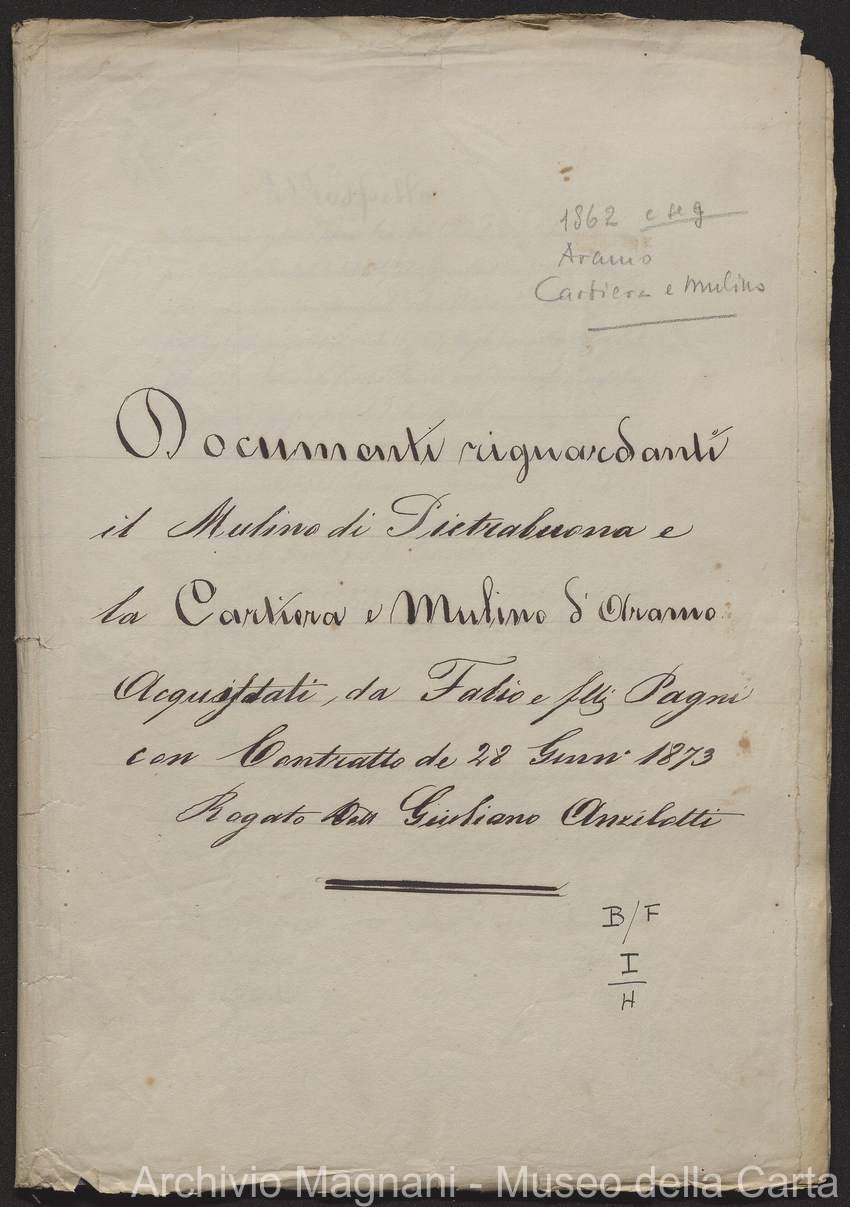 1862 e seg
Aramo
Cartiera e Mulino
Documenti riguardanti
il Mulino di Pietrabuona e
la Cartiera e Mulino d'Aramo
Acquistati, da Fabio e flli Pagni
con Contratto de 28 Genn° 1873
Rogato Dott Giuliano Anzilotti
B/F
I
H
Archivio Magnani - Museo della Carta